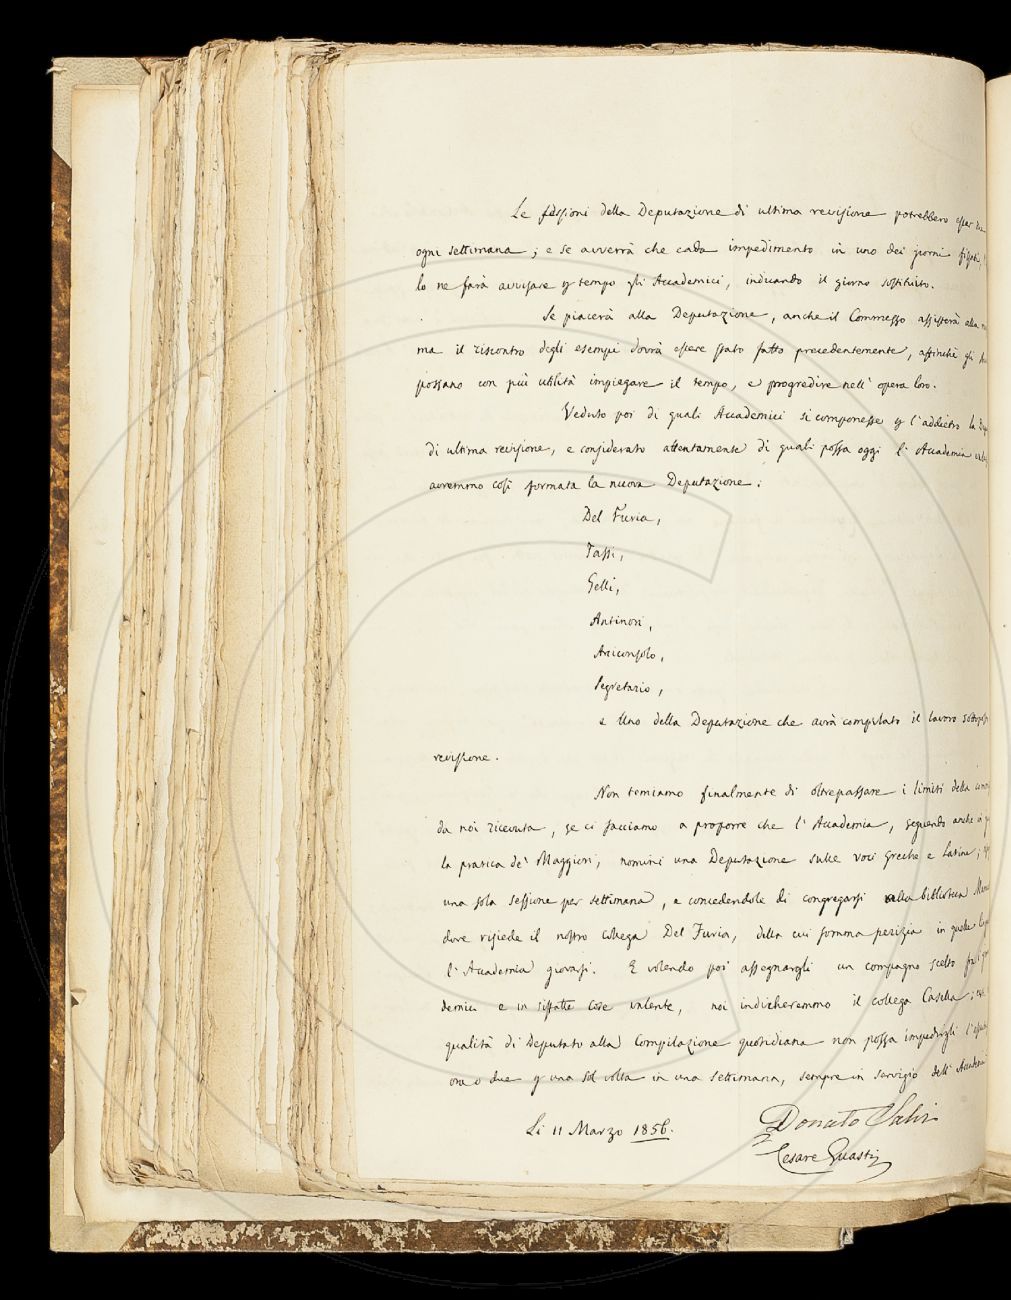 Le sessioni della Deputazione di ultima revisione potrebbero esser
ogni settimana; e se avverrà che cada impedimento in uno dei giorni
lo ne farà avvisare p tempo gli Accademici, indicando il giorno sostituito.
Se piacerà alla Deputazione, anche il Commesso assisterà alla
ma il riscontro degli esempi dovrà essere stato fatto precedentemente, affinchè gli
possano con più utilità impiegare il tempo, e progredire nell' opera loro.
Veduto poi di quali Accademici si componesse p l'addietro la
di ultima revisione, e considerato attentamente di quali possa oggi l' Accademia
avremmo così formata la nuova Deputazione:
Del Furia,
Tassi,
Gelli,
Antinori,
Arciconsolo,
Segretario,
e Uno della Deputazione che avrà compilato il lavoro
revisione.
Non temiamo finalmente di oltrepassare i limiti della
da noi ricevuta, se ci facciamo a proporre che l' Accademia, seguendo anche in
la pratica de' Maggiori, nomini una Deputazione sulle voci Greche e Latine;
una sola sessione per settimana, e concedendole di congregarsi nella biblioteca
dove risiede il nostro collega Del Furia, della cui somma perizia in quelle
l' Accademia giovarsi. E volendo poi assegnargli un compagno scelto fra
demici e in siffatte cose valente, noi indicheremmo il collega Casella;
qualità di Deputato alla Compilazione quotidiana non possa impedirgli
ora o due p una sol volta in una settimana, sempre in servigio dell' Accademia
Li 11 Marzo 1856.
Donato Salvi
Cesare Guasti